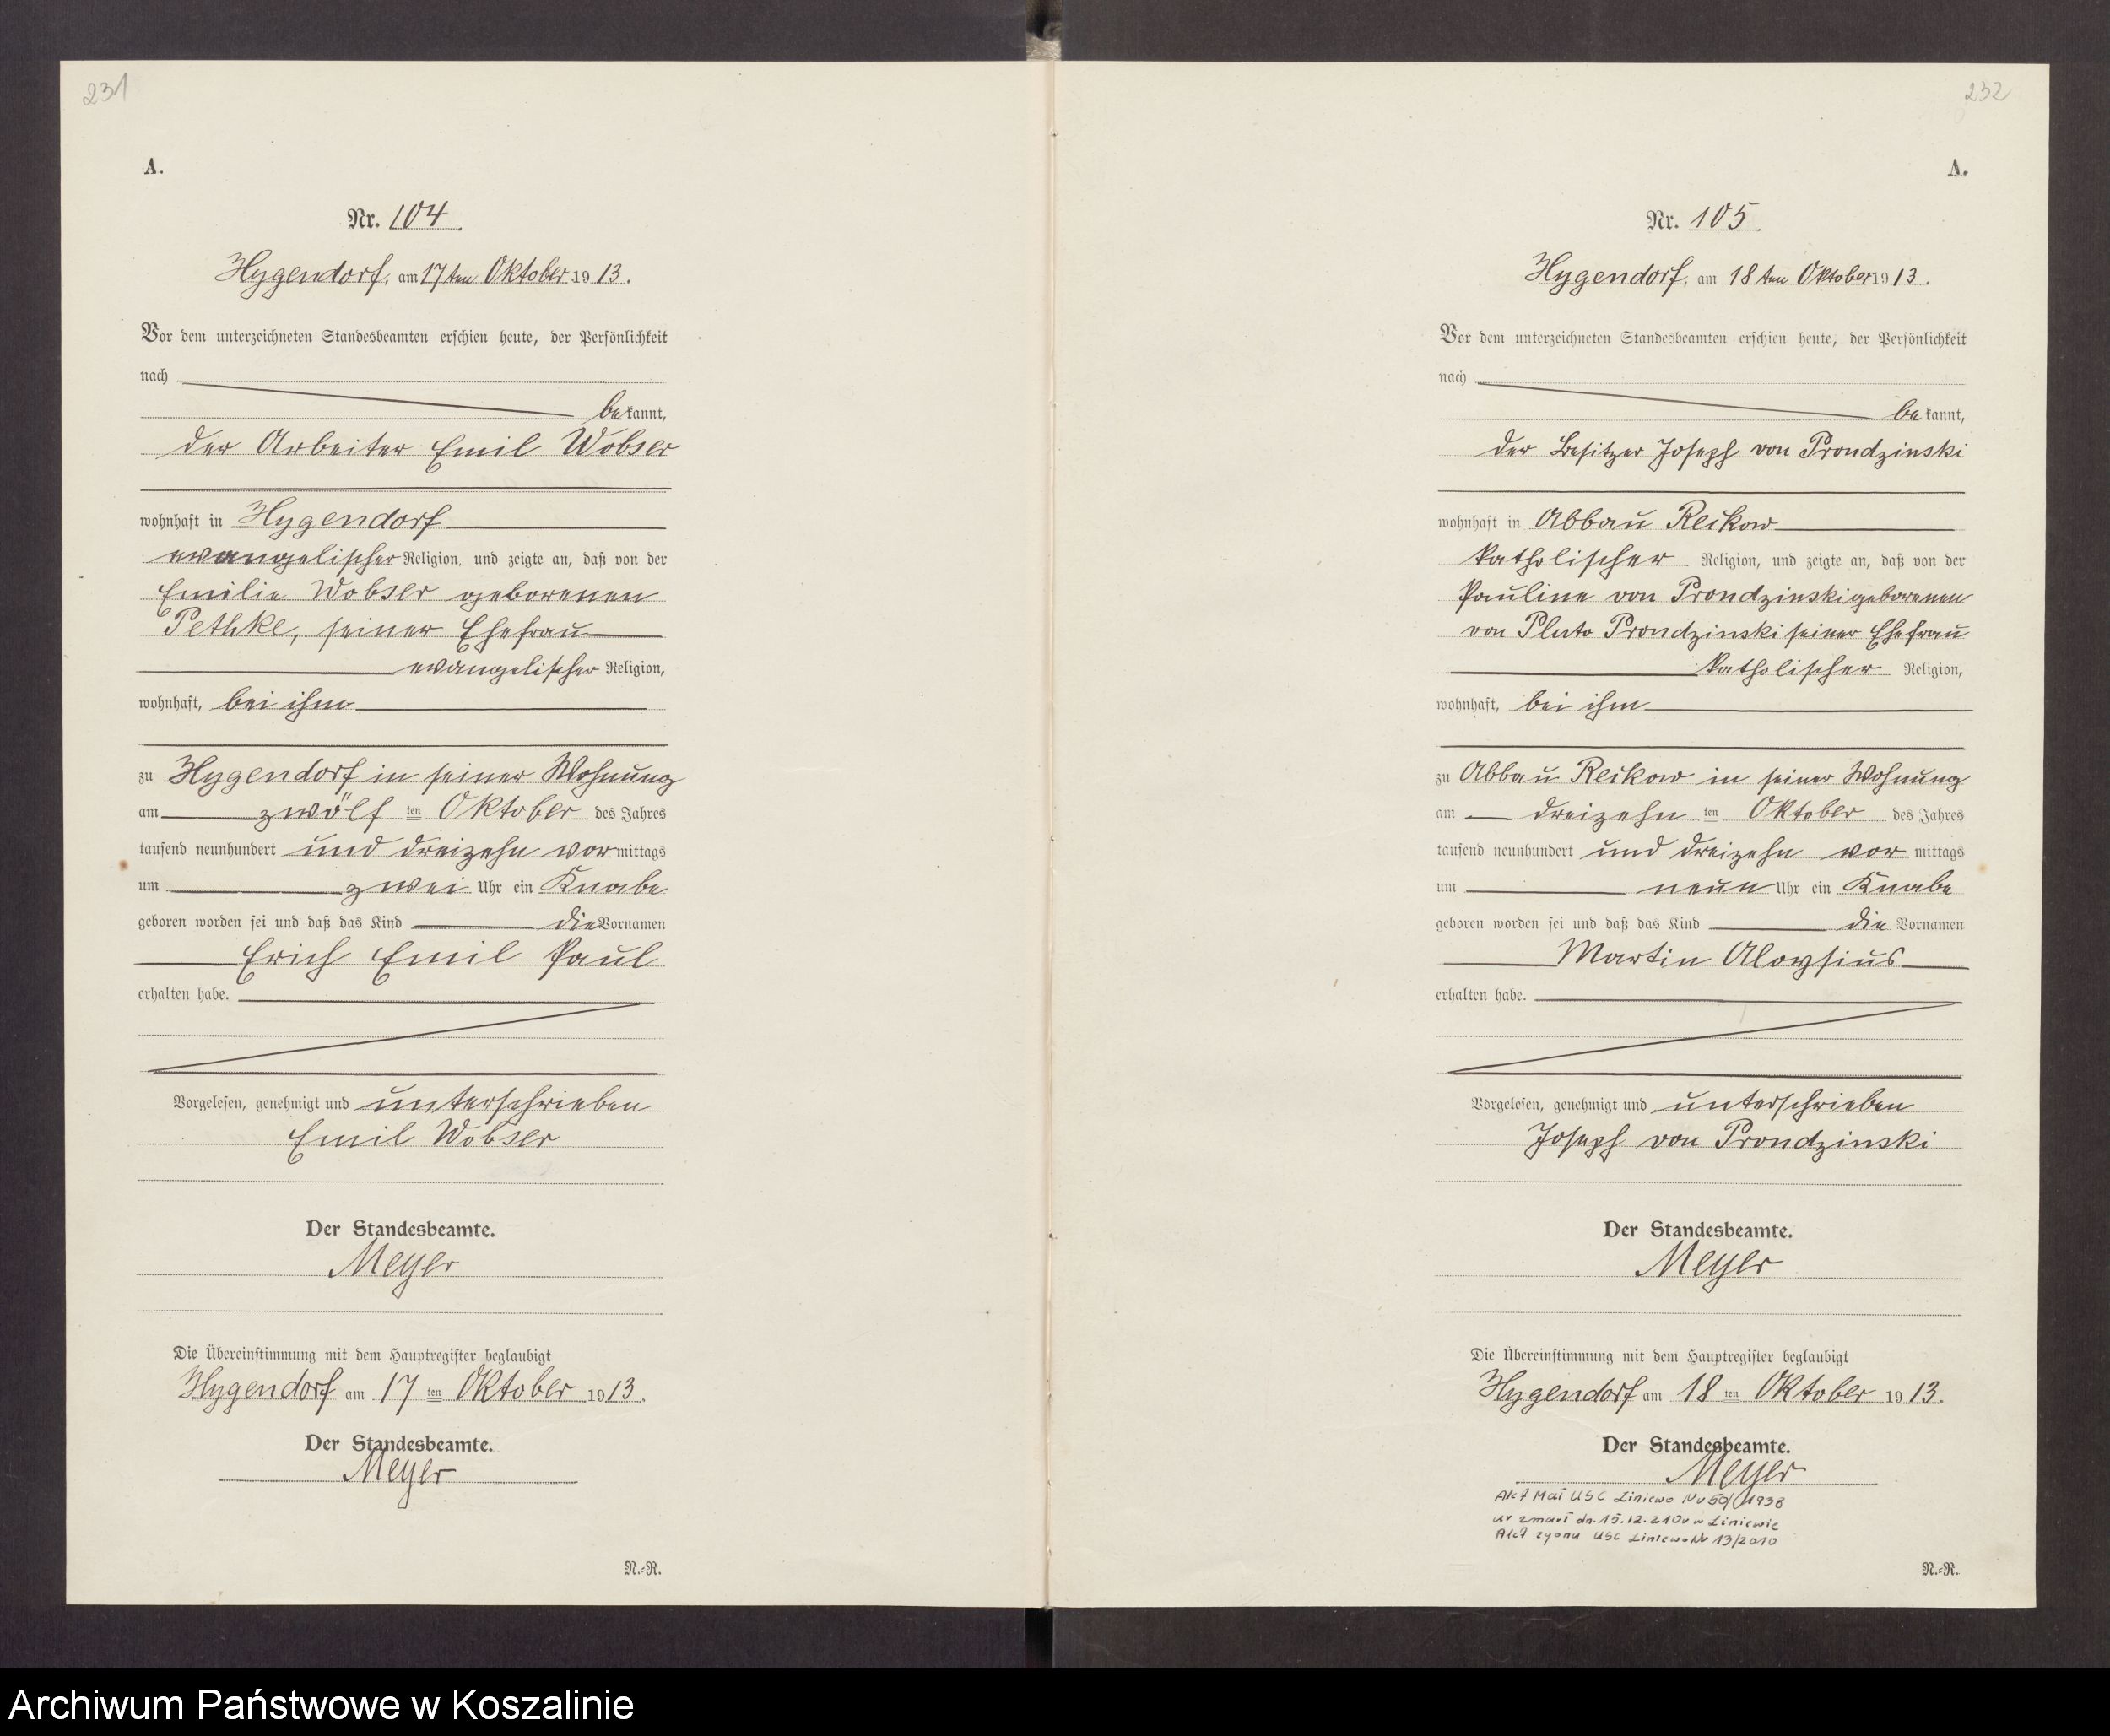 231
A.
Nr. 104.
Hygendorf, am 17ten Oktober 1913.
Vor dem unterzeichneten Standesbeamten erschien heute, der Persönlichkeit
nach
bekannt,
der Arbeiter Emil Wobser
wohnhaft in Hygendorf
evangelischer Religion, und zeigte an, daß von der
Emilie Wobser geborenen
Pethke, seiner Ehefrau
evangelischer Religion,
wohnhaft, bei ihm
zu Hygendorf in seiner Wohnung
am zwölf ten Oktober des Jahres
tausend neunhundert und dreizehn vormittags
um zwei Uhr ein Knabe
geboren worden sei und daß das Kind die Vornamen
Erich Emil Paul
erhalten habe.
Vorgelesen, genehmigt und unterschrieben
Emil Wobser
Der Standesbeamte.
Meyer
Die Übereinstimmung mit dem Hauptregister beglaubigt
Hygendorf am 17 ten Oktober 1913.
Der Standesbeamte.
Meyer
N.-R.
232
A.
Nr. 105
Hygendorf, am 18ten Oktober 1913.
Vor dem unterzeichneten Standesbeamten erschien heute, der Persönlichkeit
nach
bekannt,
der Besitzer Joseph von Prondzinski
wohnhaft in Abbau Reikow
katholischer Religion, und zeigte an, daß von der
Pauline von Prondzinski geborenen
von Pluto Prondzinski seiner Ehefrau
katholischer Religion,
wohnhaft, bei ihm
zu Abbau Reikow in seiner Wohnung
am dreizehn ten Oktober des Jahres
tausend neunhundert und dreizehn vor mittags
um neun Uhr ein Knabe
geboren worden sei und daß das Kind die Vornamen
Martin Aloysius
erhalten habe.
Vorgelesen, genehmigt und unterschrieben
Joseph von Prondzinski
Der Standesbeamte.
Meyer
Die Übereinstimmung mit dem Hauptregister beglaubigt
Hygendorf am 18 ten Oktober 1913.
Der Standesbeamte.
Meyer
Akt Mał USC Liniewo Nr 50/1938
zmarł dn. 15.12.210r w Liniewie
Akt zgonu USC Liniewo Nr 13/2010
N.-R.
Archiwum Państwowe w Koszalinie